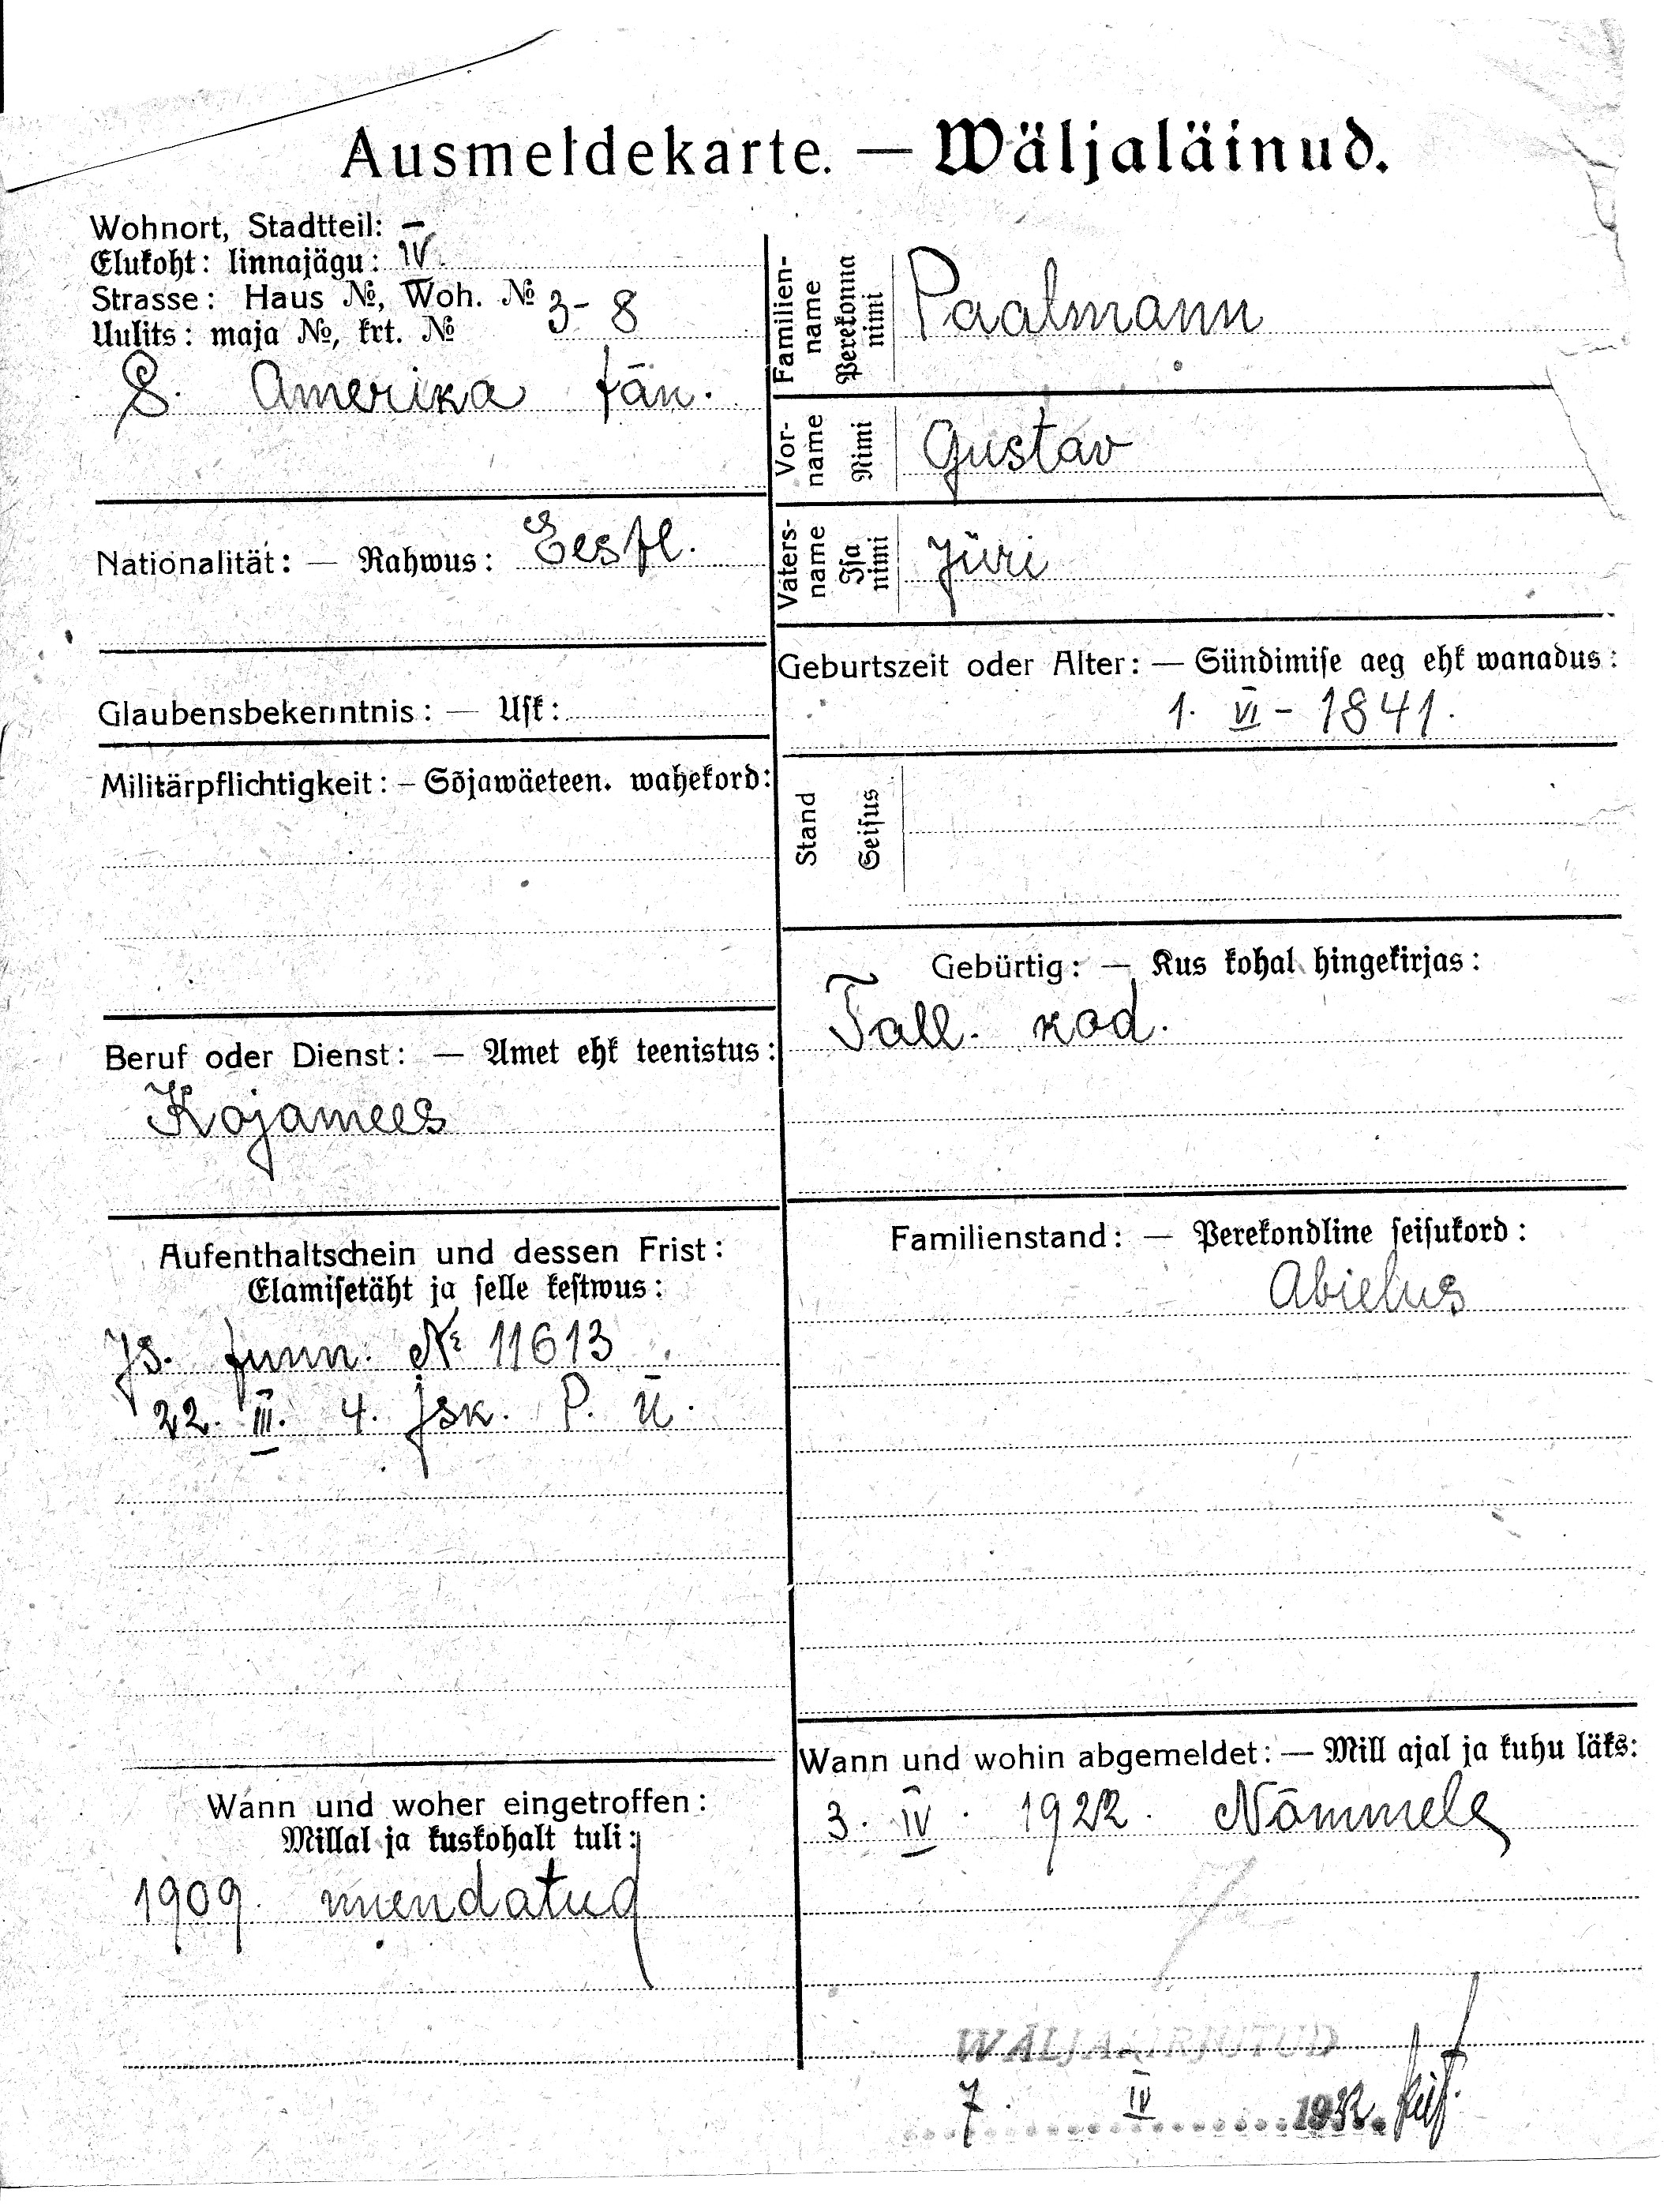 Ausmeldekarte. — Wäljaläinud.
Wohnort, Stadtteil: –
Elukoht: linnajägu: IV.
Strasse: Haus №, Woh. №
Uulits: maja №, krt. № 3-8
S. Amerika tän.
Nationalität: — Rahwus: Eestl.
Glaubensbekenntnis: — Usk:
Militärpflichtigkeit: – Sõjawäeteen. wahekord:
Beruf oder Dienst: — Amet ehk teenistus:
Kojamees
Aufenthaltschein und dessen Frist:
Elamisetäht ja selle kestwus:
Js. tunn. № 11613
22. III. 4. jsk. P. ü.
Wann und woher eingetroffen:
Millal ja kuskohalt tuli:
1909. muendatud
Familien-
name
Perekonna
nimi
Paalmann
Vor-
name
Nimi
Gustav
Vaters-
name
Isa
nimi
Jüri
Geburtszeit oder Alter: — Sündimise aeg ehk wanadus:
1. VI - 1841.
Stand
Seisus
Gebürtig: — Kus kohal hingekirjas:
Tall. kod.
Familienstand: — Perekondline seisukord:
Abielus
Wann und wohin abgemeldet: — Mill ajal ja kuhu läks:
3. IV. 1922. Nõmmele
WÄLJAKIRJUTUD
7. IV 1922.